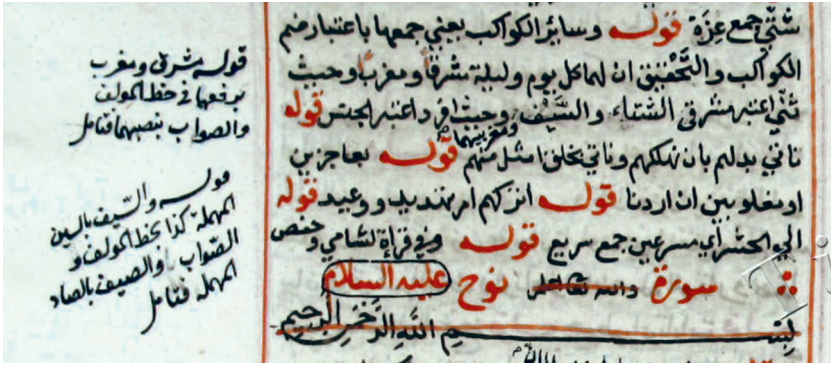 شتى جمع عزة قوله وسائر الكواكب يعني جمعها باعتبار ضم
الكواكب والتحقيق ان لها كل يوم وليلة مشرقا ومغربا وحيث
ثنى اعتبر مشرقى الشتاء والسيف ومغربيهما وحيث افرد اعتبر الجنس قوله
ناتي بدلهم بان نهلكهم وناتي بخلق امثل منهم قوله بعاجزين
او مغلوبين ان اردنا قوله اتركهم امر تهديد ووعيد قوله
الي الحشر اي مسرعين جمع سريع قوله وفي قراة لشامي وحفص
سورة نوح عليه السلام
بسم الله الرحمن الرحيم
قوله مشرق ومغرب
برفعها في خط المولف
والصواب بنصبهما فتامل
قوله والسيف بالسين
المهملة كذا بخط المولف و
الصواب والصيف بالصاد
المهملة فتامل